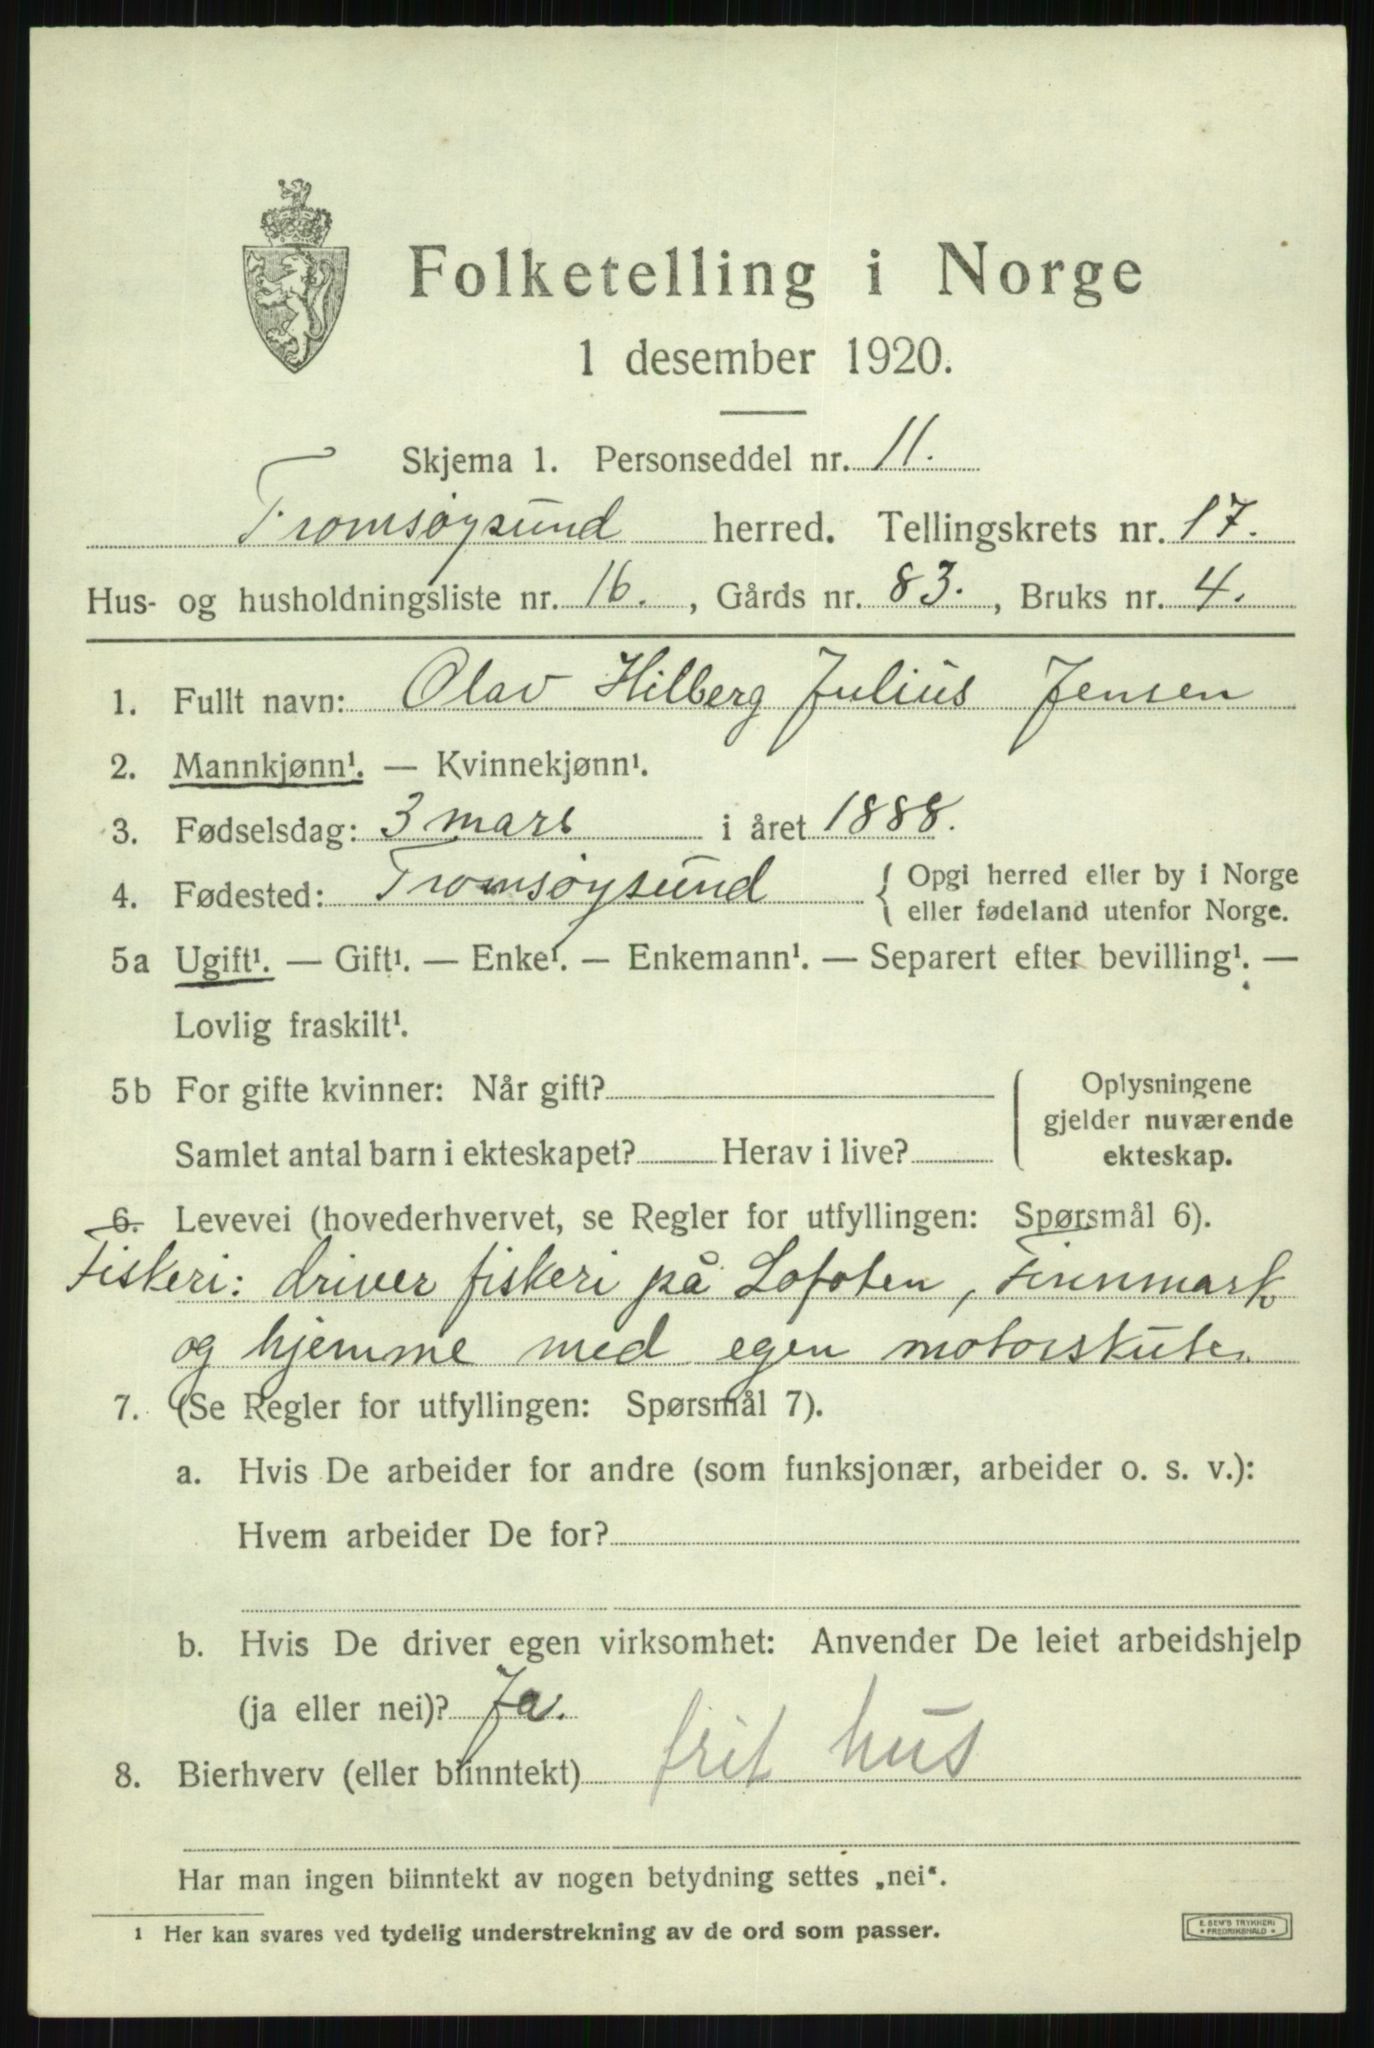 Folketelling i Norge
1 desember 1920.
Skjema 1. Personseddel nr. 11.
Tromsøysund herred. Tellingskrets nr. 17.
Hus- og husholdningsliste nr. 16., Gårds nr. 83., Bruks nr. 4.
1. Fullt navn: Olav Hilberg Julius Jensen
2. Mannkjønn¹. — Kvinnekjønn¹.
3. Fødselsdag: 3 mars i året 1888.
4. Fødested: Tromsøysund { Opgi herred eller by i Norge
eller fødeland utenfor Norge.
5a Ugift¹. — Gift¹. — Enke¹. — Enkemann¹. — Separert efter bevilling¹. —
Lovlig fraskilt¹.
5b For gifte kvinner: Når gift?
Samlet antal barn i ekteskapet? Herav i live?
Oplysningene
gjelder nuværende
ekteskap.
6. Levevei (hovederhvervet, se Regler for utfyllingen: Spørsmål 6).
Fiskeri: driver fiskeri på Lofoten, Finnmark
og hjemme med egen motorskute.
7. (Se Regler for utfyllingen: Spørsmål 7).
a. Hvis De arbeider for andre (som funksjonær, arbeider o. s. v.):
Hvem arbeider De for?
b. Hvis De driver egen virksomhet: Anvender De leiet arbeidshjelp
(ja eller nei)? Ja.
8. Bierhverv (eller biinntekt) frit hus
Har man ingen biinntekt av nogen betydning settes „nei“.
1 Her kan svares ved tydelig understrekning av de ord som passer.
E. SEM'S TRYKKERI
* FREDRIKSHALD *